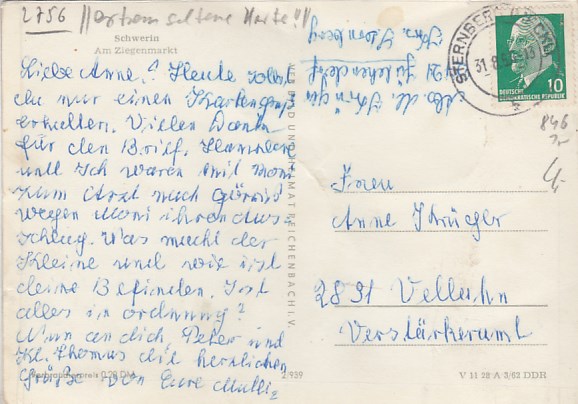 2756 || extrem seltene Karte! ||
Schwerin
Am Ziegenmarkt
Liebe Anne! Heute sollst
du nur einen Kartengruß
erhalten. Vielen Dank
für den Brief. Hannelore
und Ich waren mit Moni
zum Arzt nach
wegen Moni ihren Aus
schlag. Was macht der
Kleine und wie ist
deine Befinden. Ist
alles in ordnung?
Nun an dich, Peter und
Kl. Thomas die herzlichen
Grüße von Eure Mutti
Verbraucherpreis 0,20 DM
2/939
BILD UND HEIMAT REICHENBACH I. V.
Abs. Krüger
Kr. Sternberg
STERNBERG (MECKL)
31.8.
DEUTSCHE
DEMOKRATISCHE REPUBLIK
10
846
4,-
Frau
Anne Krueger
2821 Vellahn
Verstärkeramt
V 11 28 A 3/62 DDR